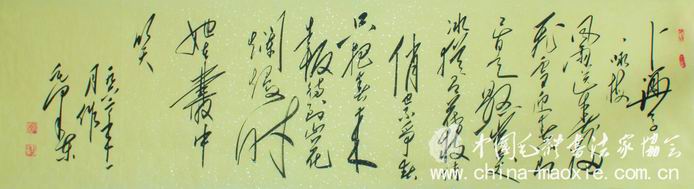 卜算子
·咏梅
风雨送春归
飞雪迎春到
已是悬崖百丈
冰犹有花枝
俏俏也不争春
只把春来
报待到山花
烂漫时
她在叢中
笑
月作
毛泽东
中國毛體書法家協會
www.china-maoxie.com